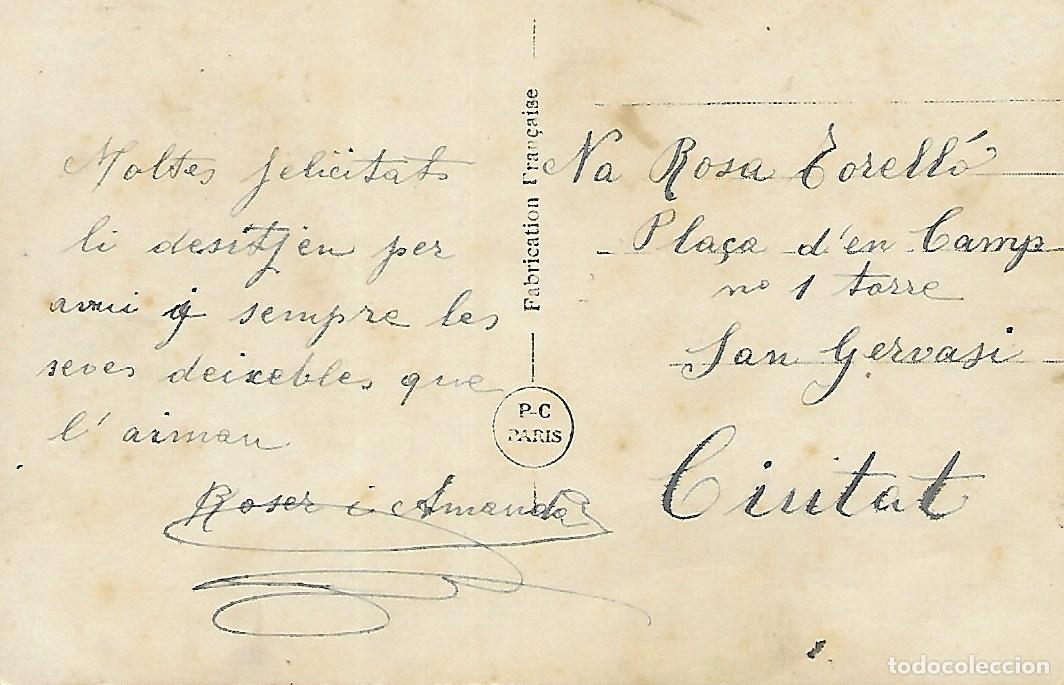 Moltes felicitats
li desitjen per
avui y sempre les
seves deixebles que
l'aiman
Roser i Amanda
Fabrication Française
P-C
PARIS
Na Rosa Torelló
Plaça d'en Camp
nº 1 torre
San Gervasi
Ciutat
todocoleccion